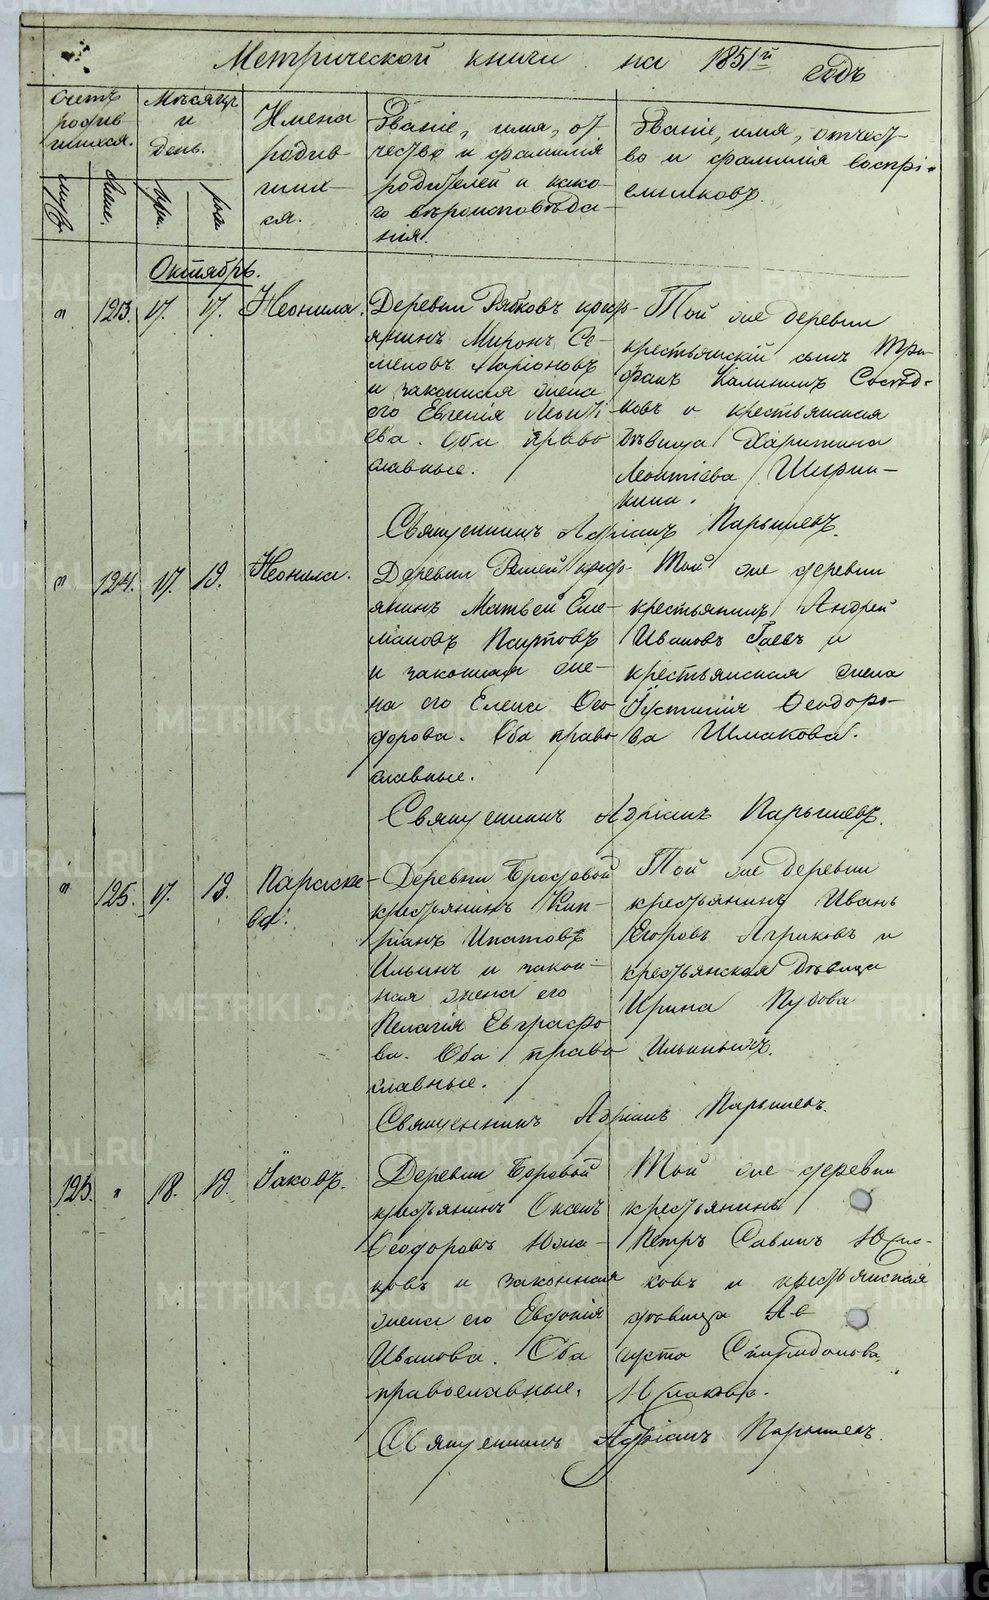 Метрической книги на 1851й годъ
Счетъ родив шихся.
Мѣсяцъ и день.
Имена родив- ших- ся.
Званіе, имя, от- чество и фамилія родителей и како- го вѣроисповѣда- нія.
Званіе, имя, отчест- во и фамилія воспрі- емниковъ.
муж. жен.
Октябрь.
" 123. 17. 17. Неонила.
Деревни крест-
янинъ Миронъ Се-
меновъ Ларіоновъ
и законная жена
его Евгенія
ева. Оба право
славные.
Той же деревни
крестьянскій сынъ Три-
фанъ Калининъ
ковъ и крестьянская
дѣвица Харитина
Леонтіева Ширин-
кина.
Священникъ Адріанъ Парышевъ.
" 124. 17. 19. Неонила.
Деревни крест-
янинъ Матвей
мановъ
и законная же-
на его Елена Фео
дорова. Оба право
славные.
Той же деревни
крестьянинъ Андрей
Ивановъ Гаевъ и
крестьянская жена
Іустинія Феодоро-
ва Шмакова.
Священникъ Адріанъ Парышевъ.
" 125. 17. 19. Параске-
ва.
Деревни Бродовой
крестьянинъ Кип-
ріанъ Ипатовъ
Ильинъ и закон-
ная жена его
Пелагія Евграфо
ва. Оба право
славные.
Той же деревни
крестьянинъ Иванъ
Егоровъ Агриковъ и
крестьянская дѣвица
Ирина
Ильиныхъ.
Священникъ Адріанъ Парышевъ.
123. " 18. 19. Іаковъ.
Деревни Боровой
крестьянинъ
Феодоровъ Южа-
ковъ и законная
жена его Евдокія
Иванова. Оба
православные.
Той же деревни
крестьянинъ
Петръ Савинъ
ковъ и крестьянская
дѣвица Ав
густа Спиридонова
Священникъ Адріанъ Парышевъ.
METRIKI.GASO-URAL.RU